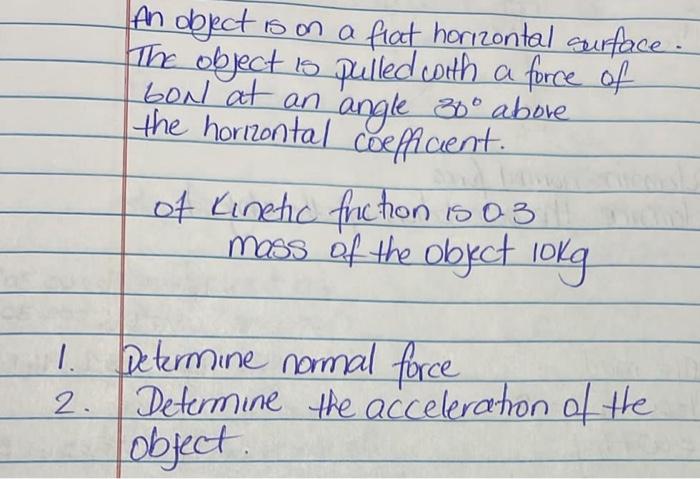 An object is on a flat horizontal surface.
The object is pulled with a force of
60N at an angle 30° above
the horizontal coefficient.
of kinetic friction is 0.3
mass of the object 10kg
1. Determine normal force
2. Determine the acceleration of the
object.